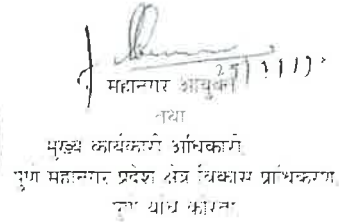 महानगर आयुक्त
तथा
मुख्य कार्यकारी अधिकारी
पुणे महानगर प्रदेश क्षेत्र विकास प्राधिकरण
पुणे यांचे करिता